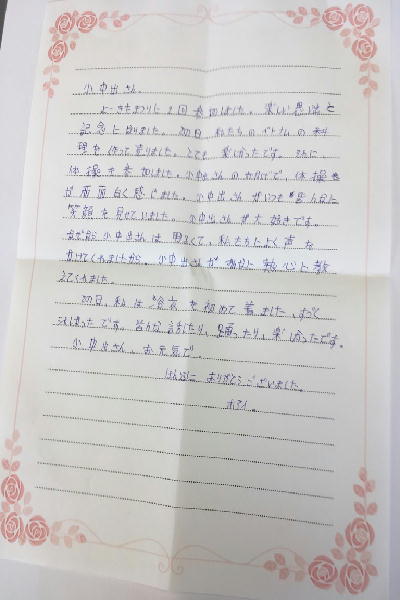 小中出さん、
よさきまつりに2回参加しました。楽しい思い出と
記念になりました。初日、私たちのベトナムの料
理を作って売りました。とても楽しかったです。さらに
体操も参加しました。小中出さんのおかげで、体操を
は面白く感じました。小中出さんがいつも皆々に
笑顔を見せていました。小中出さんが大好きです。
なぜなら小中出さんは明るくて、私たちによく声を
かけてくれましたから。小中出さんが 熱心に教
えてくれました。
初日、私は浴衣を初めて着ました、
です。皆んな話したり、踊ったり、楽しかったです。
小中出さん、お元気で。
ほんとうに ありがとうございました。